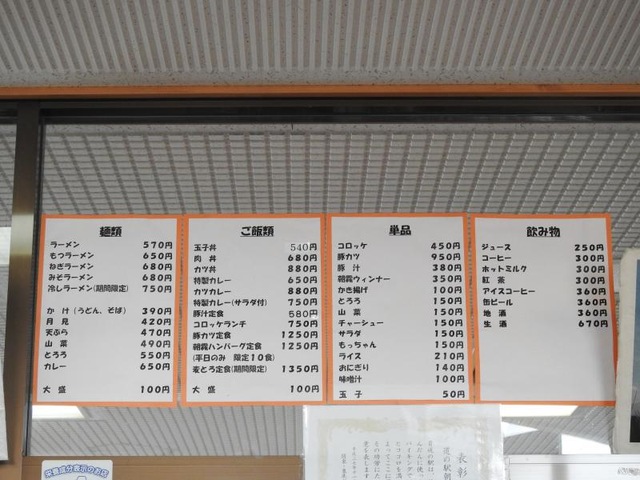 麺類
ラーメン 570円
もつラーメン 650円
ねぎラーメン 680円
みそラーメン 680円
冷しラーメン(期間限定) 750円
かけ(うどん、そば) 390円
月見 420円
天ぷら 470円
山菜 490円
とろろ 550円
カレー 650円
大盛 100円
ご飯類
玉子丼 540円
肉丼 680円
カツ丼 880円
特製カレー 650円
カツカレー 880円
特製カレー(サラダ付) 750円
豚汁定食 580円
コロッケランチ 750円
豚カツ定食 1250円
朝霧ハンバーグ定食 1250円
(平日のみ 限定10食)
麦とろ定食(期間限定) 1350円
大盛 100円
単品
コロッケ 450円
豚カツ 950円
豚汁 380円
朝霧ウィンナー 350円
かき揚げ 100円
とろろ 150円
山菜 150円
チャーシュー 150円
サラダ 150円
もっちゃん 150円
ライス 210円
おにぎり 140円
味噌汁 100円
玉子 50円
飲み物
ジュース 250円
コーヒー 300円
ホットミルク 300円
紅茶 300円
アイスコーヒー 360円
缶ビール 360円
地酒 360円
生酒 670円
栄養成分表示のお店
表彰
道の駅朝